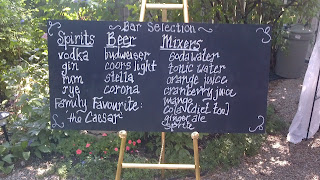 Bar Selection
Spirits Beer Mixers
vodka budweiser soda water
gin coors light tonic water
rum stella orange juice
rye corona cranberry juice
Family Favourite: mango
the Caesar cola (diet too)
ginger ale
sprite